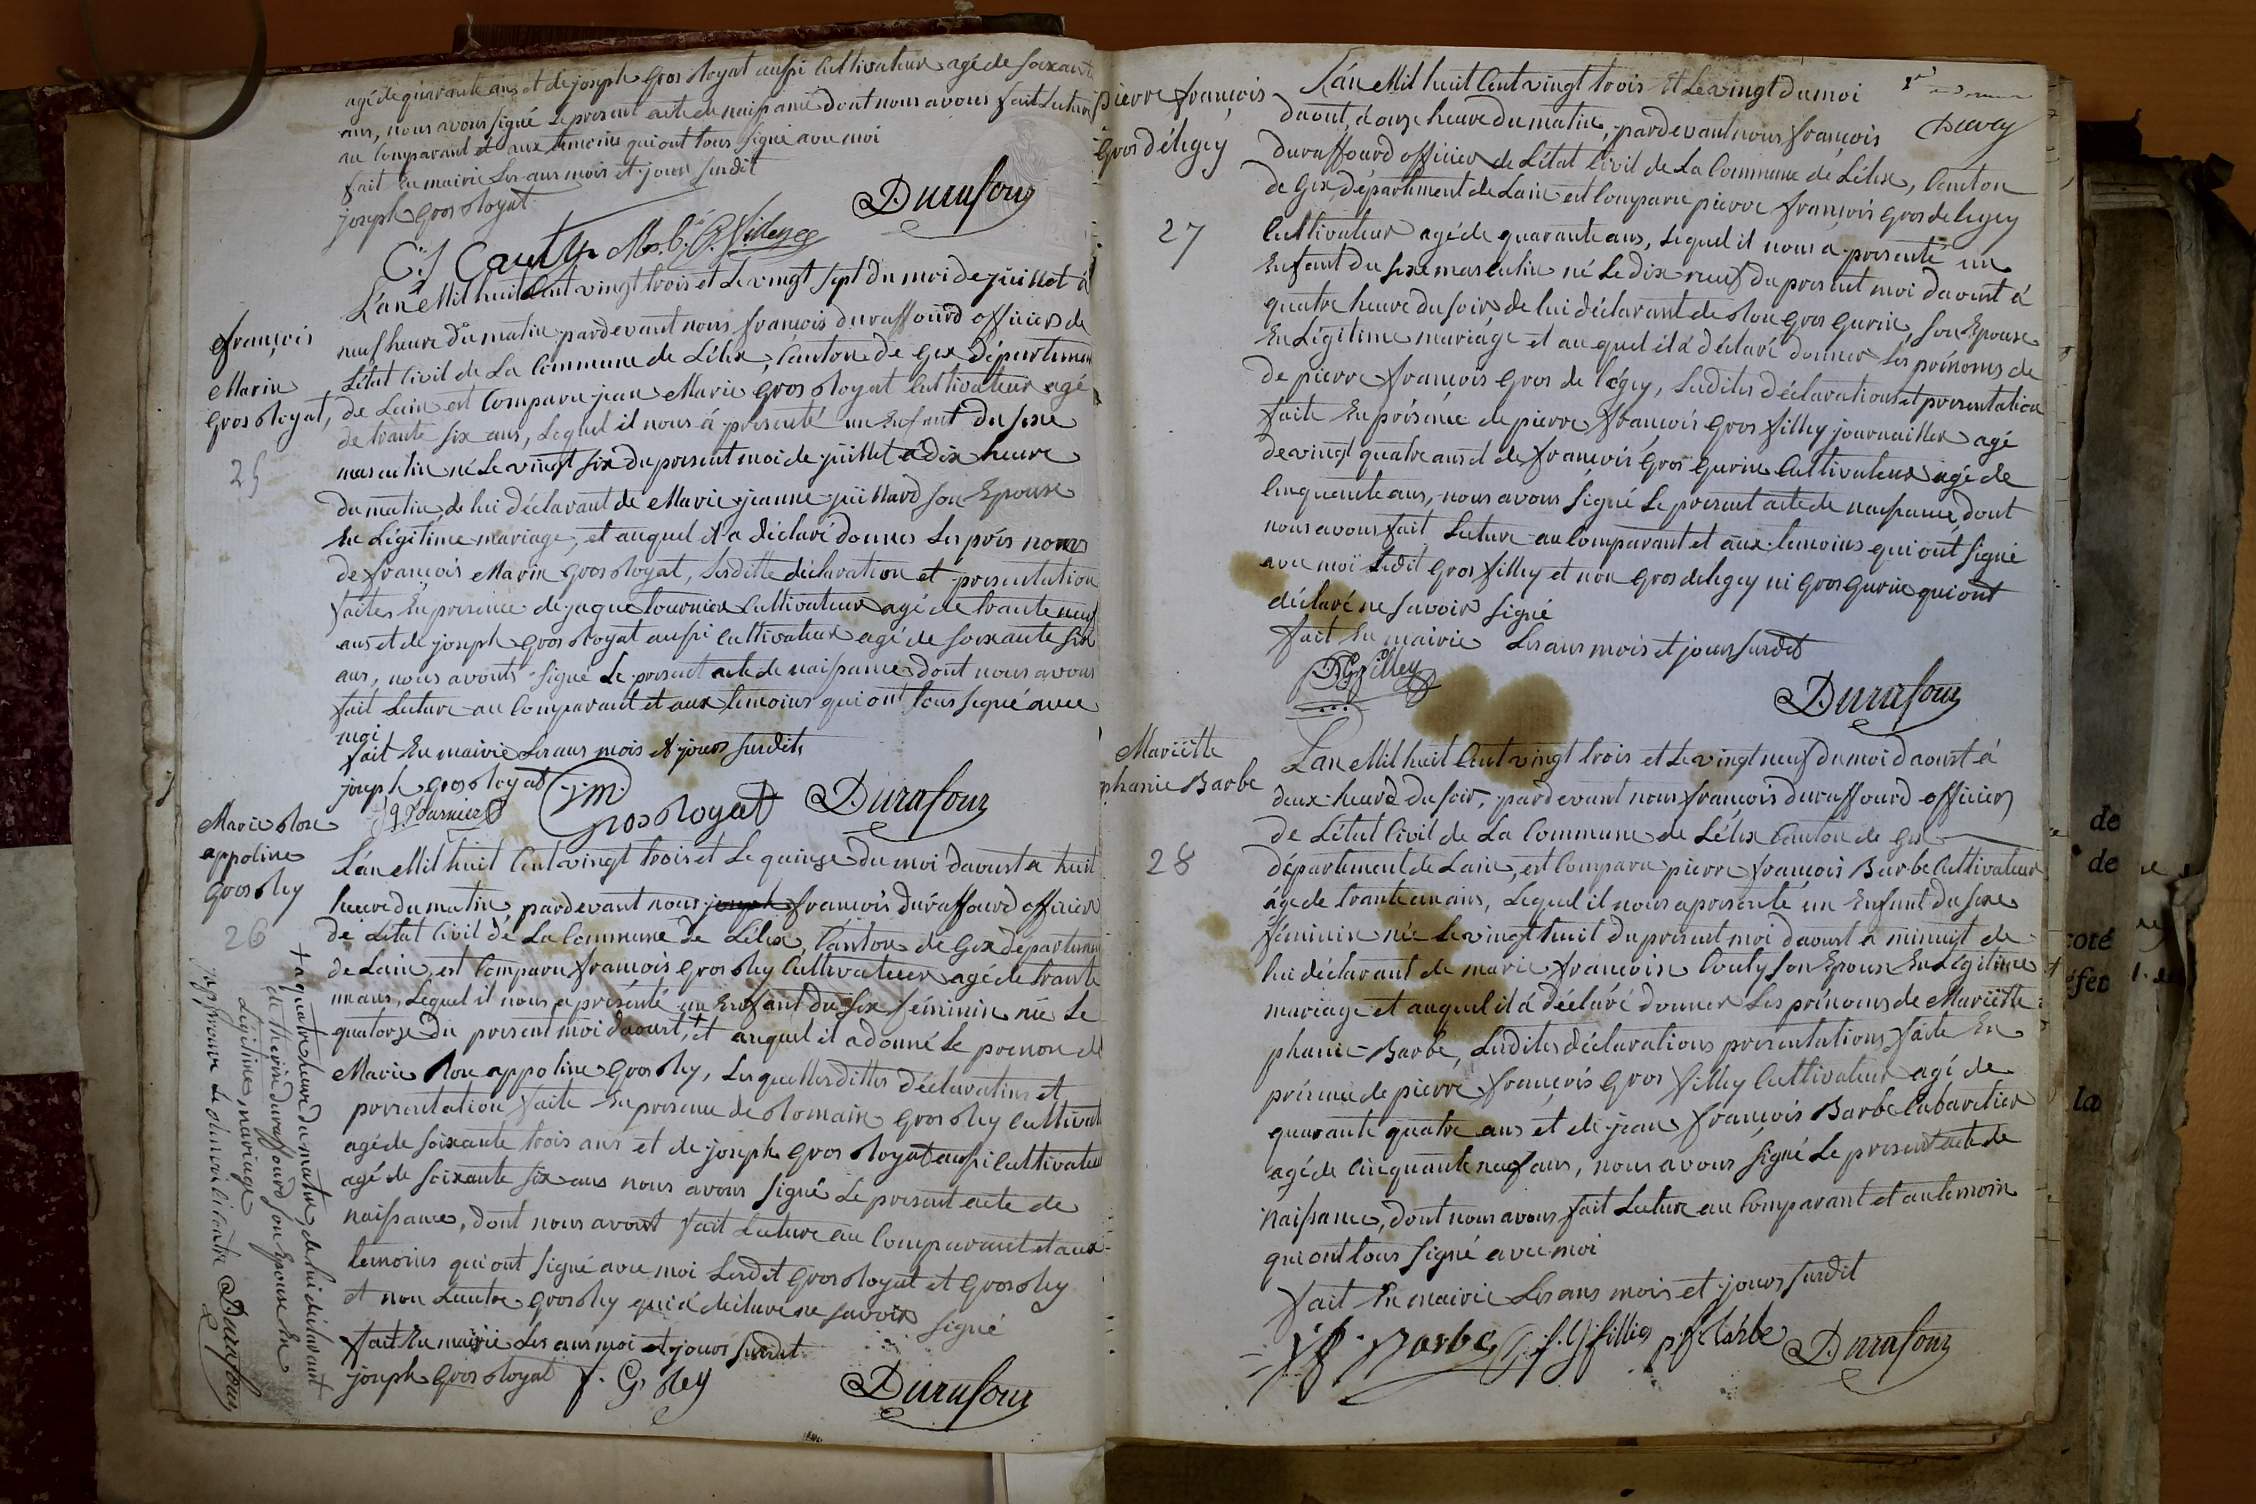 agé de quarante ans et de joseph Gros Royat aussi Cultivateur agé de soixante
ans, nous avons signé le present acte de naissance dont nous avons fait Lecture
au Comparant et aux temoins qui ont tous signé avec moi
fait En mairie Les ans mois et jours susdit
joseph Gros Royat
Durafour
françois
Marin
Gros Royat,
25
L'an Mil huit Cent vingt trois et Le vingt sept du moi de juillet à
neuf heure du matin pardevant nous françois duraffourd officier de
L'état Civil de La Commune de Lélex, Canton de Gex département
de Lain est Comparu jean Marie Gros Royat Cultivateur agé
de trante six ans, Lequel il nous á presenté un Enfant du sexe
masculin né Le vingt six du present moi de juillet à dix heure
du matin de lui déclarant de Marie jeanne juillard son Epouse
En Légitime mariage, et auquel il a déclaré donner Les prés noms
de françois Marin Gros Royat, Lesditte déclaration et presentation
faites En presence de jaque tournier Cultivateur agé de trante neuf
ans et de joseph Gros Royat aussi Cultivateur agé de soixante six
ans, nous avonts signé Le present acte de naissance dont nous avons
fait Lecture au Comparant et aux temoins qui ont tous signé avec
moi
fait En mairie Les ans mois et jours susdits
joseph Gros Royat
jq Tournier
jm
Gros Royat
Durafour
Marie Rose
appoline
Gros Rey
26
L'an Mil huit Cent vingt trois et Le quinze du moi daoust a huit
heure du matin, pardevant nous joseph françois duraffourd officier
de Létat Civil de La Commune de Lélex, Canton de Gex département
de Lain, est Comparu françois Gros Rey Cultivateur agé de trante
un ans, Lequel il nous a présenté un Enfant du sexe féminin née Le
quatorze du present moi daoust, + et auquel il a donné Le prenom de
Marie Rose appoline Gros Rey, Lesquelles dittes déclaratins et
presentation faite En presence de Romain Gros Rey Cultivat
agé de soixante trois ans et de joseph Gros Royat aussi Cultivateur
agé de soixante six ans nous avons signé Le present acte de
naissance, dont nous avont fait Lecture au Comparant et aux
temoins qui ont signé avec moi Lesdit Gros Royat et Gros Rey
et non Lautre Gros Rey qui á déclaré ne savoir signé
fait En mairie Les ans moi et jours susdit
joseph Gros Royat f. G. Rey
Durafour
+ a quatre heure du matin, de lui déclarant
de therise duraffourd son Epouse En
Légitime mariage
japprouve Le
Durafour
pierre françois
Gros déligey
27
L'an Mil huit Cent vingt trois et Le vingt du moi
daout, à onze heure du matin, pardevant nous françois
duraffourd officier de Létat Civil de La Commune de Lélex, Canton
de Gex, département de Lain est Comparu pierre françois Gros de ligey
Cultivateur agé de quarante ans, Lequel il nous á presenté un
Enfant du sexe masculin né Le dix neuf du present moi daoust á
quatre heure du soir, de lui déclarant de Rou Gros Gurin, son Epouse
En Légitime mariage et au quel il á déclaré donner Les prénoms de
de pierre françois Gros de légey, Lesdites déclarations et presentation
faite En présence de pierre françois Gros filley journailler agé
de vingt quatre ans et de françois Gros Gurin Cultivateur agé de
Cinquante ans, nous avons signé Le present acte de naissance, dont
nous avons fait Lecture au Comparant et aux temoins qui ont signé
avec moi Ledit Gros filley et non Gros deligey ni Gros Gurin qui ont
déclaré ne savoir signé
fait En mairie Les ans mois et jours susdit
Durafour
Mariëtte
phanie Barbe
28
L'an Mil huit Cent vingt trois et Le vingt neuf du moi daoust á
deux heure du soir, pardevant nous françois duraffourd officier
de Létat Civil de La Commune de Lélex Canton de Gex
département de Lain, est Comparu pierre françois Barbe Cultivateur
âgé de trante un ans, Lequel il nous a presenté un Enfant du sexe
féminin née Le vingt huit du présent moi daoust a minuit de
lui déclarant de marie françoise Couly son Epouse En Légitime
mariage et auquel il á déclaré donner Les prénoms de Mariëtte
phanie Barbe, Lesdites déclarations presentations faite En
présence de pierre françois Gros filley Cultivateur agé de
quarante quatre ans et de jean françois Barbe Cabaretier
agé de Cinquante neuf ans, nous avons signé Le present acte de
naissance, dont nous avons fait Lecture au Comparant et au temoin
qui ont tous signé avec moi
fait En mairie Les ans mois et jours susdit
jf Barbe p.f. Gfilley pf Barbe Durafour
de
de
coté
la